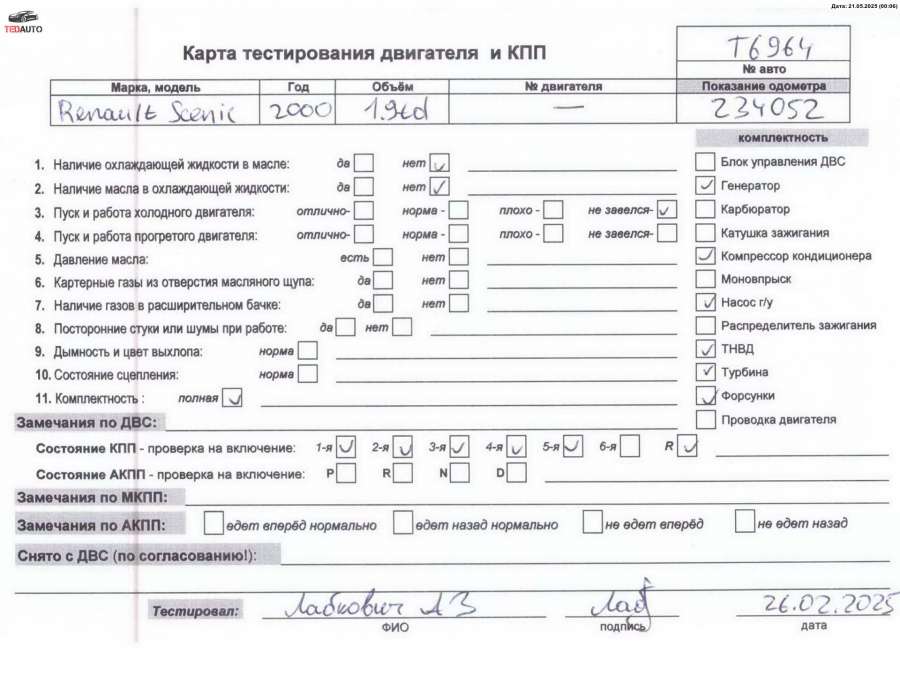 Дата: 21.05.2025 (00:06)
TEDAUTO
Карта тестирования двигателя и КПП
T6964
№ авто
Марка, модель Год Объём № двигателя Показание одометра
Renault Scenic 2000 1.9td — 234052
комплектность
1. Наличие охлаждающей жидкости в масле: да нет ✓
Блок управления ДВС
2. Наличие масла в охлаждающей жидкости: да нет ✓
✓ Генератор
3. Пуск и работа холодного двигателя: отлично- норма - плохо - не завелся- ✓
Карбюратор
4. Пуск и работа прогретого двигателя: отлично- норма - плохо - не завелся-
Катушка зажигания
5. Давление масла: есть нет
✓ Компрессор кондиционера
6. Картерные газы из отверстия масляного щупа: да нет
Моновпрыск
7. Наличие газов в расширительном бачке: да нет
✓ Насос г/у
8. Посторонние стуки или шумы при работе: да нет
Распределитель зажигания
9. Дымность и цвет выхлопа: норма
✓ ТНВД
10. Состояние сцепления: норма
✓ Турбина
11. Комплектность : полная ✓
✓ Форсунки
Замечания по ДВС:
Проводка двигателя
Состояние КПП - проверка на включение: 1-я ✓ 2-я ✓ 3-я ✓ 4-я ✓ 5-я ✓ 6-я R ✓
Состояние АКПП - проверка на включение: P R N D
Замечания по МКПП:
Замечания по АКПП: едет вперёд нормально едет назад нормально не едет вперёд не едет назад
Снято с ДВС (по согласованию!):
Тестировал: Лабкович А З Лаб 26.02.2025
ФИО подпись дата